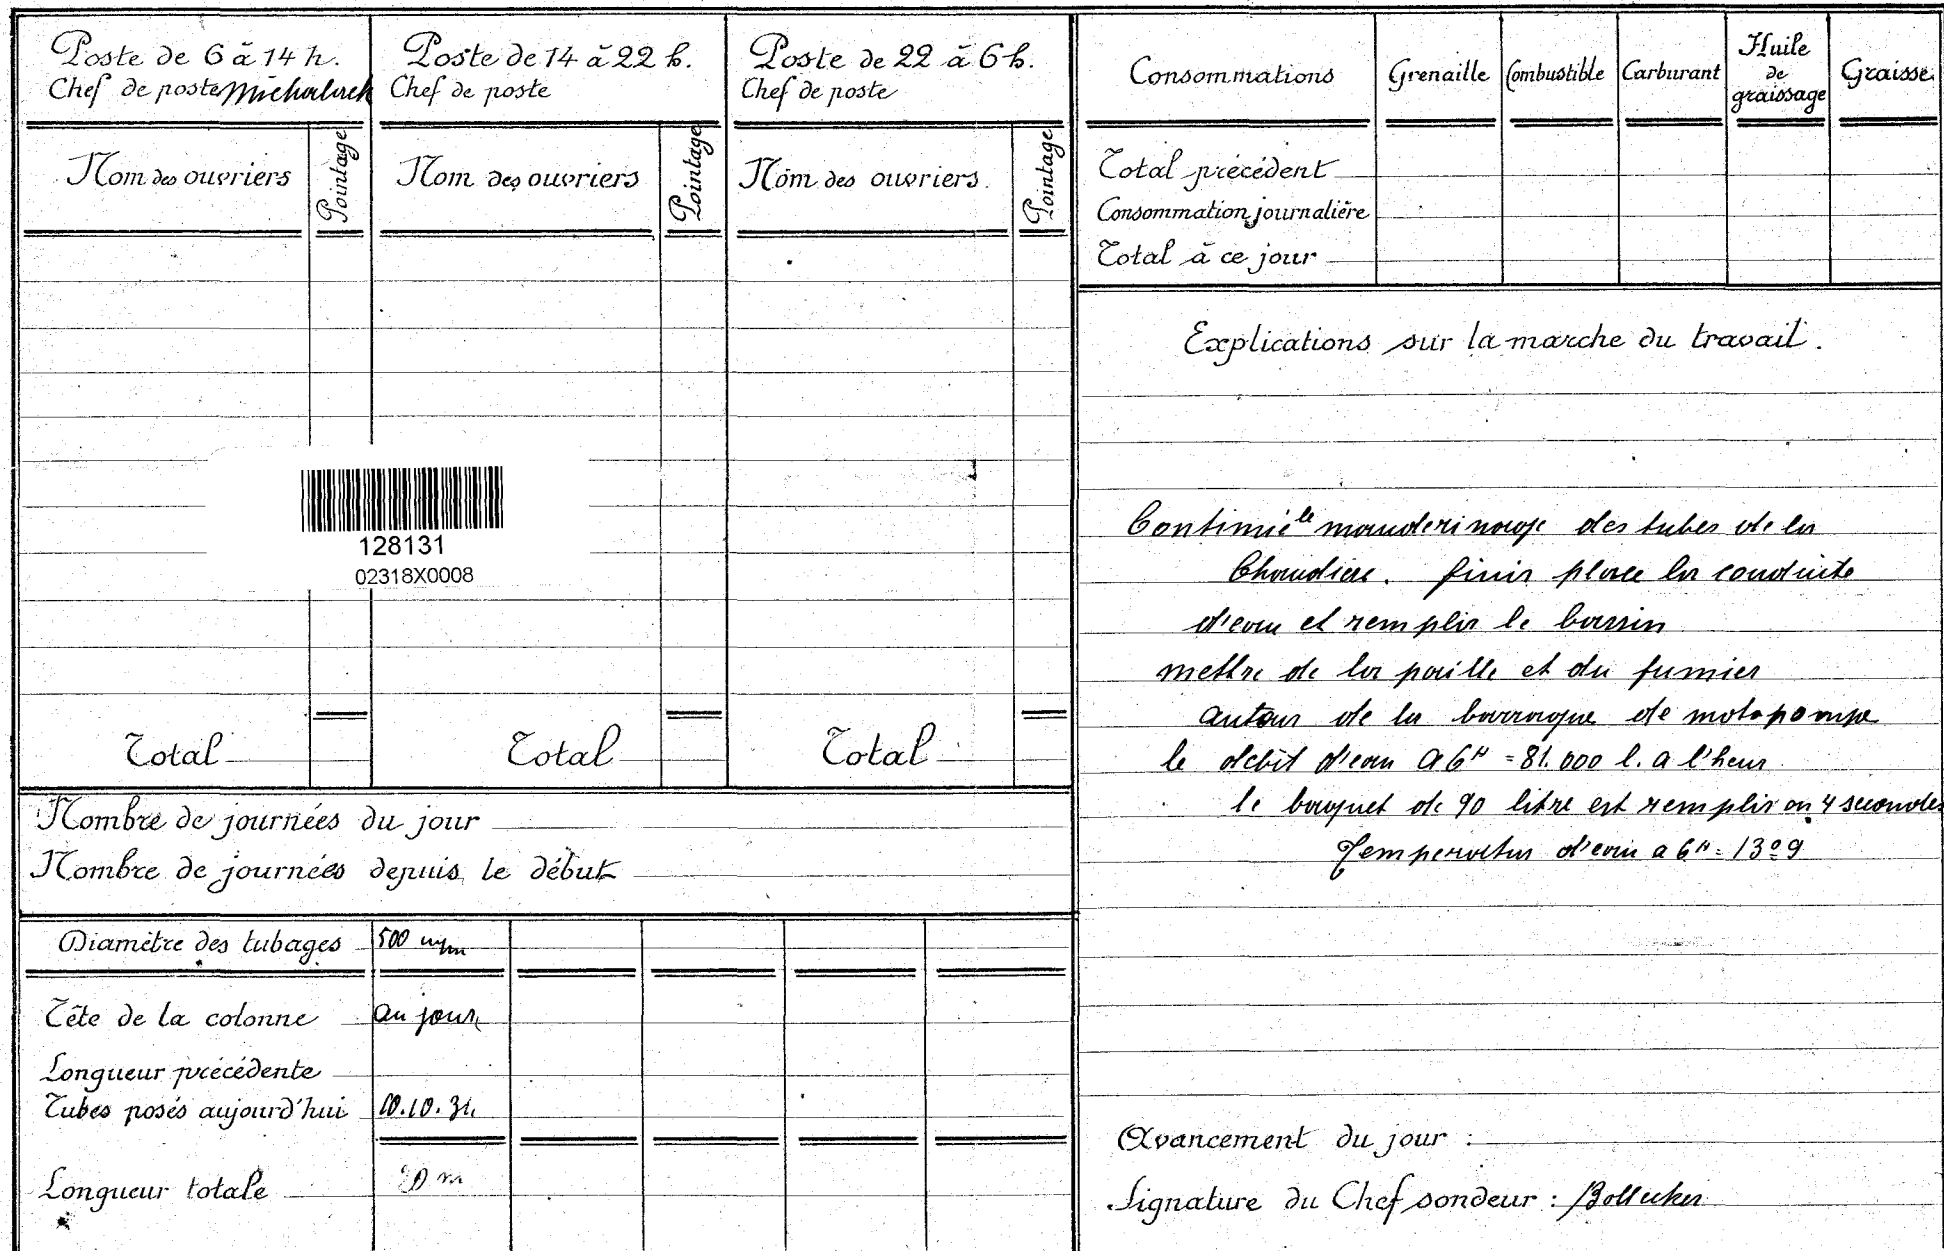 Poste de 6 à 14 h.
Chef de poste
Poste de 14 à 22 h.
Chef de poste
Poste de 22 à 6 h.
Chef de poste
Nom des ouvriers
Pointage
Nom des ouvriers
Pointage
Nom des ouvriers
Pointage
128131
02318X0008
Total
Total
Total
Nombre de journées du jour
Nombre de journées depuis le début
Diamètre des tubages 500 m/m
Tête de la colonne au jour
Longueur précédente
Tubes posés aujourd'hui 10.10.31
Longueur totale m
Consommations
Grenaille
Combustible
Carburant
Huile
de
graissage
Graisse
Total précédent
Consommation journalière
Total à ce jour
Explications sur la marche du travail.
Continué le manderinage des tubes de la
Chaudiere. finir place la conduite
d'eau et remplir le bassin
mettre de la paille et du fumier
autour de la baraque de motopompe
le debit d'eau a 6H = 81.000 l. a l'heur
le baquet de 90 litre est remplir en 4 secondes
Temperatur d'eau a 6H = 13º9
Avancement du jour :
Signature du Chef sondeur : Bollecker